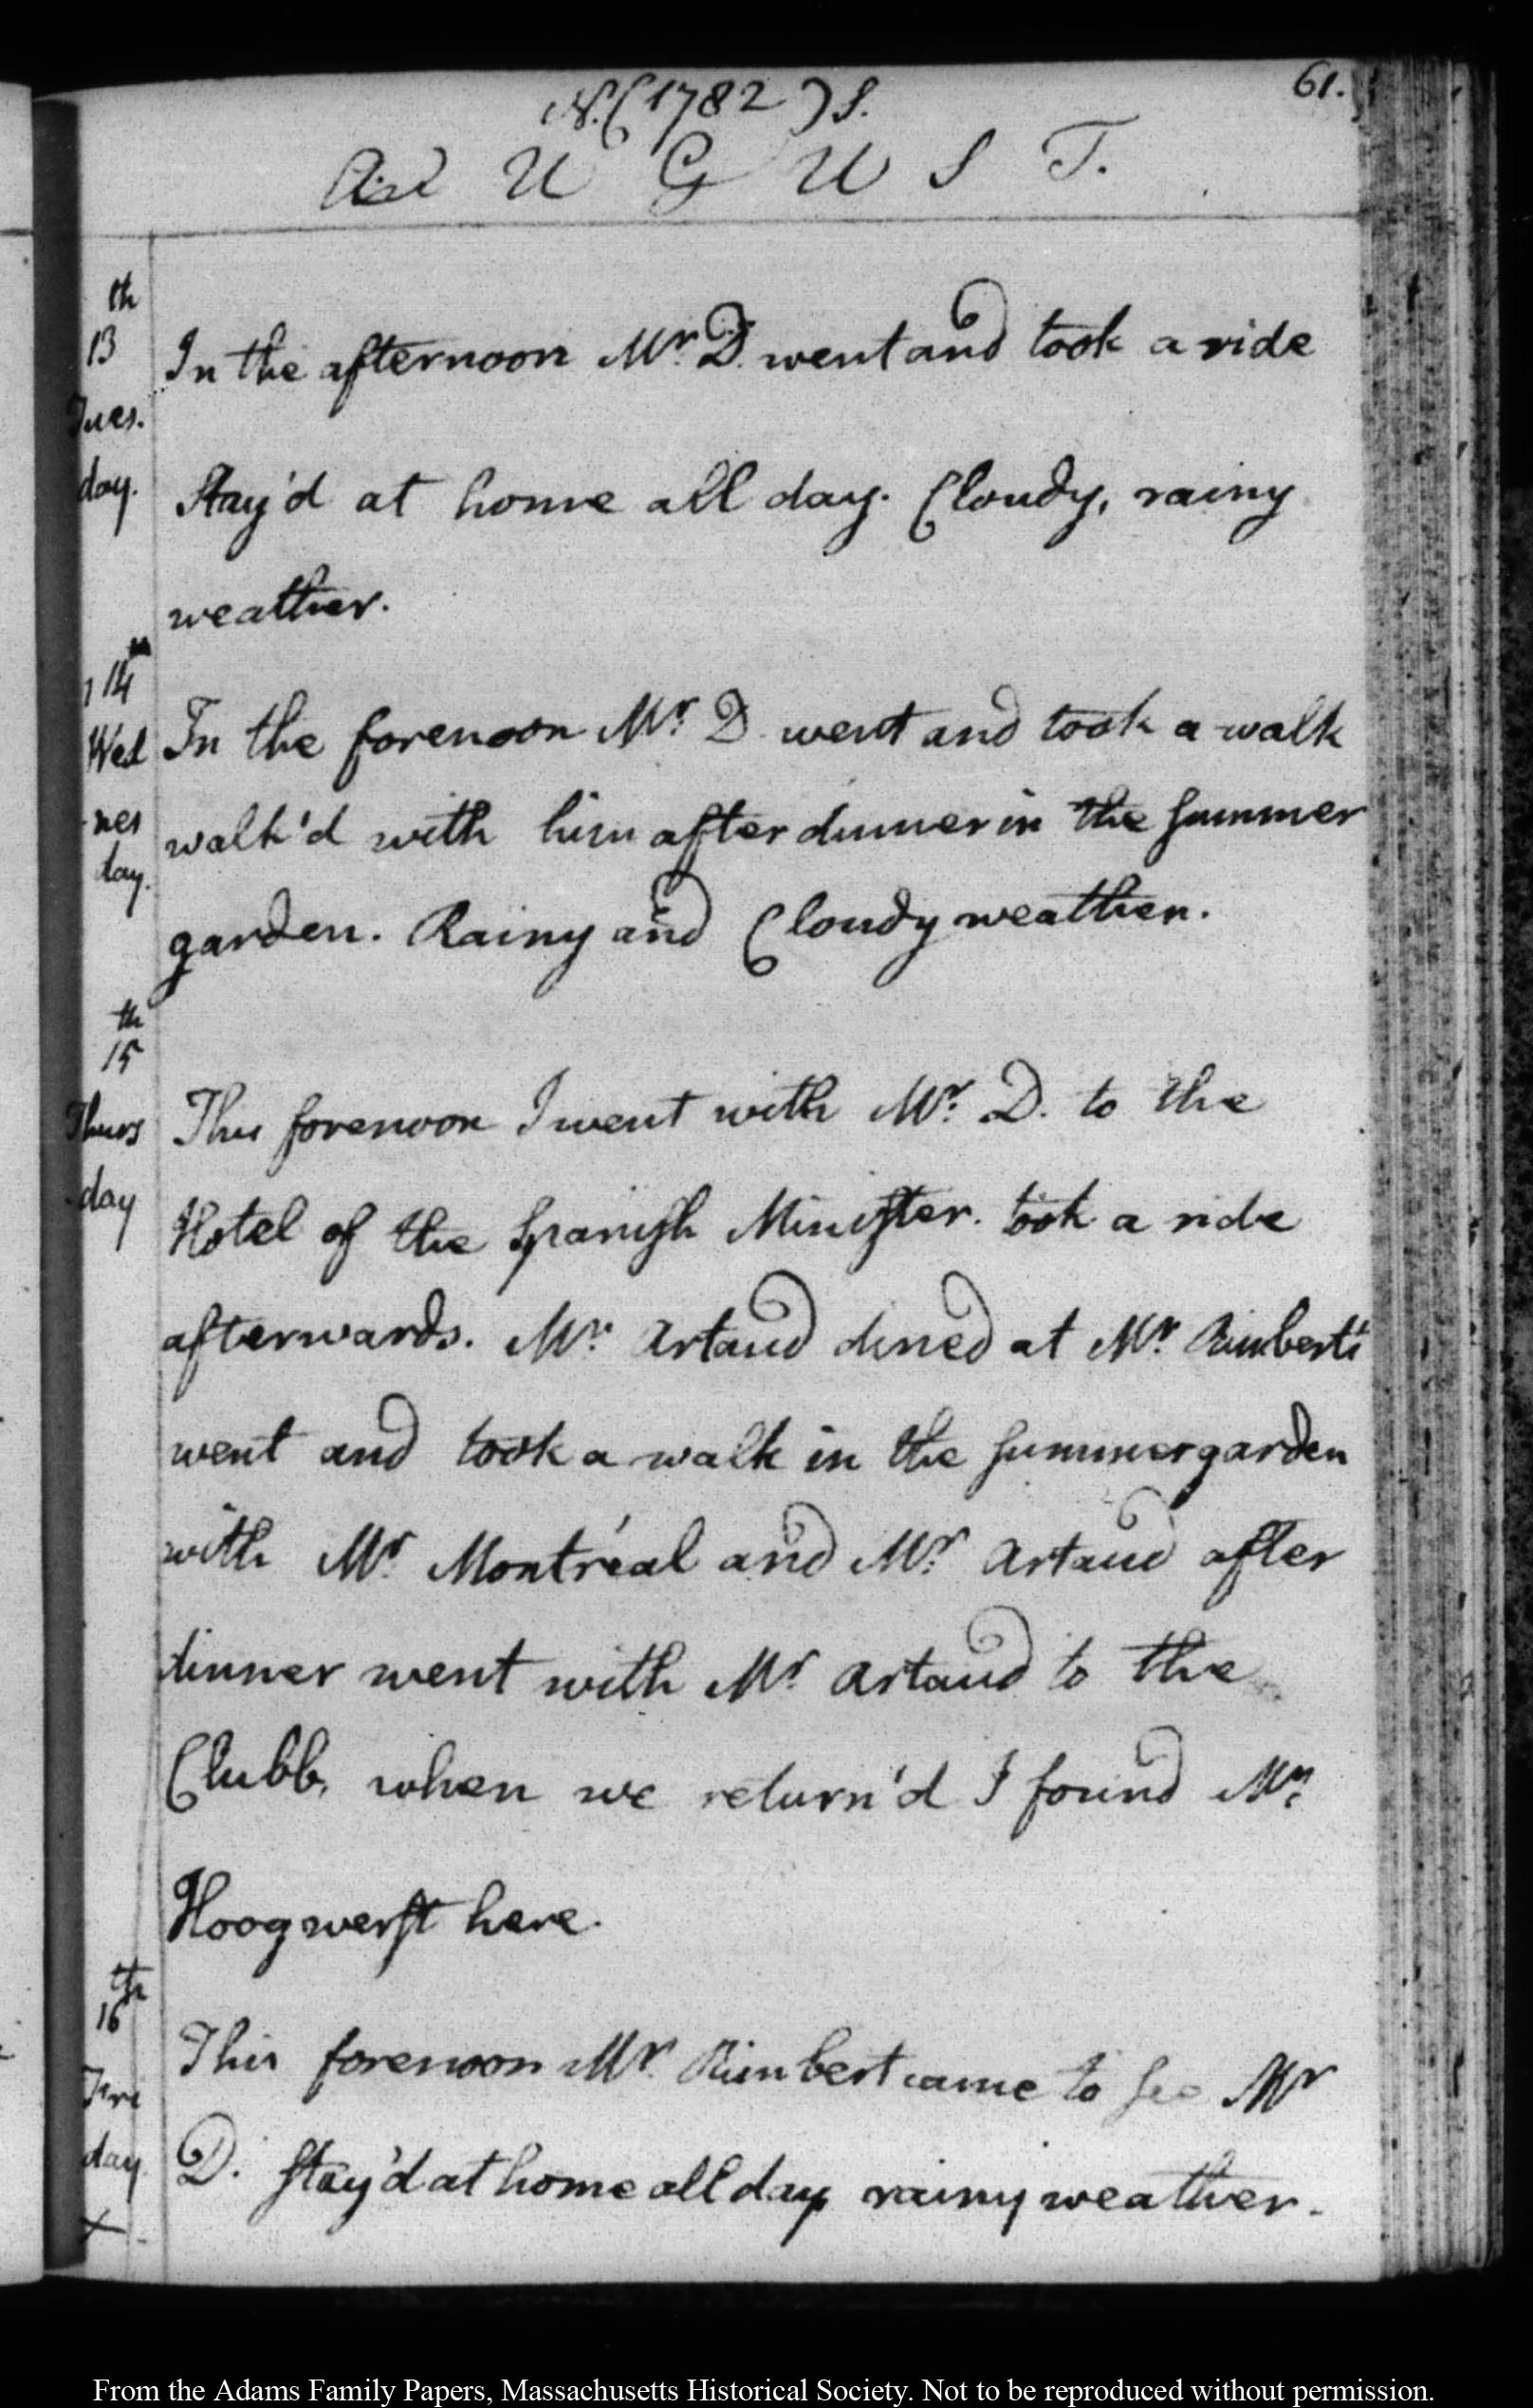 N. (1782) S.
61.
A U G U S T.
th
13
Tues.
day.
In the afternoon Mr. D. went and took a ride
Stay'd at home all day. Cloudy, rainy
weather.
14
Wed
nes
day.
In the forenoon Mr. D. went and took a walk
walk'd with him after dinner in the Summer
garden. Rainy and Cloudy weather.
th
15
Thurs
day
This forenoon I went with Mr. D. to the
Hotel of the Spanish Minister. took a ride
afterwards. Mr. Artaud dined at Mr. Rimbert's
went and took a walk in the Summergarden
with Mr. Montréal and Mr. Artaud after
dinner went with Mr. Artaud to the
Clubb, when we return'd I found Mr.
Hoogwerft here.
th
16
Fri
day
This forenoon Mr. Rimbert came to see Mr
D. Stay'd at home all day rainy weather.
From the Adams Family Papers, Massachusetts Historical Society. Not to be reproduced without permission.